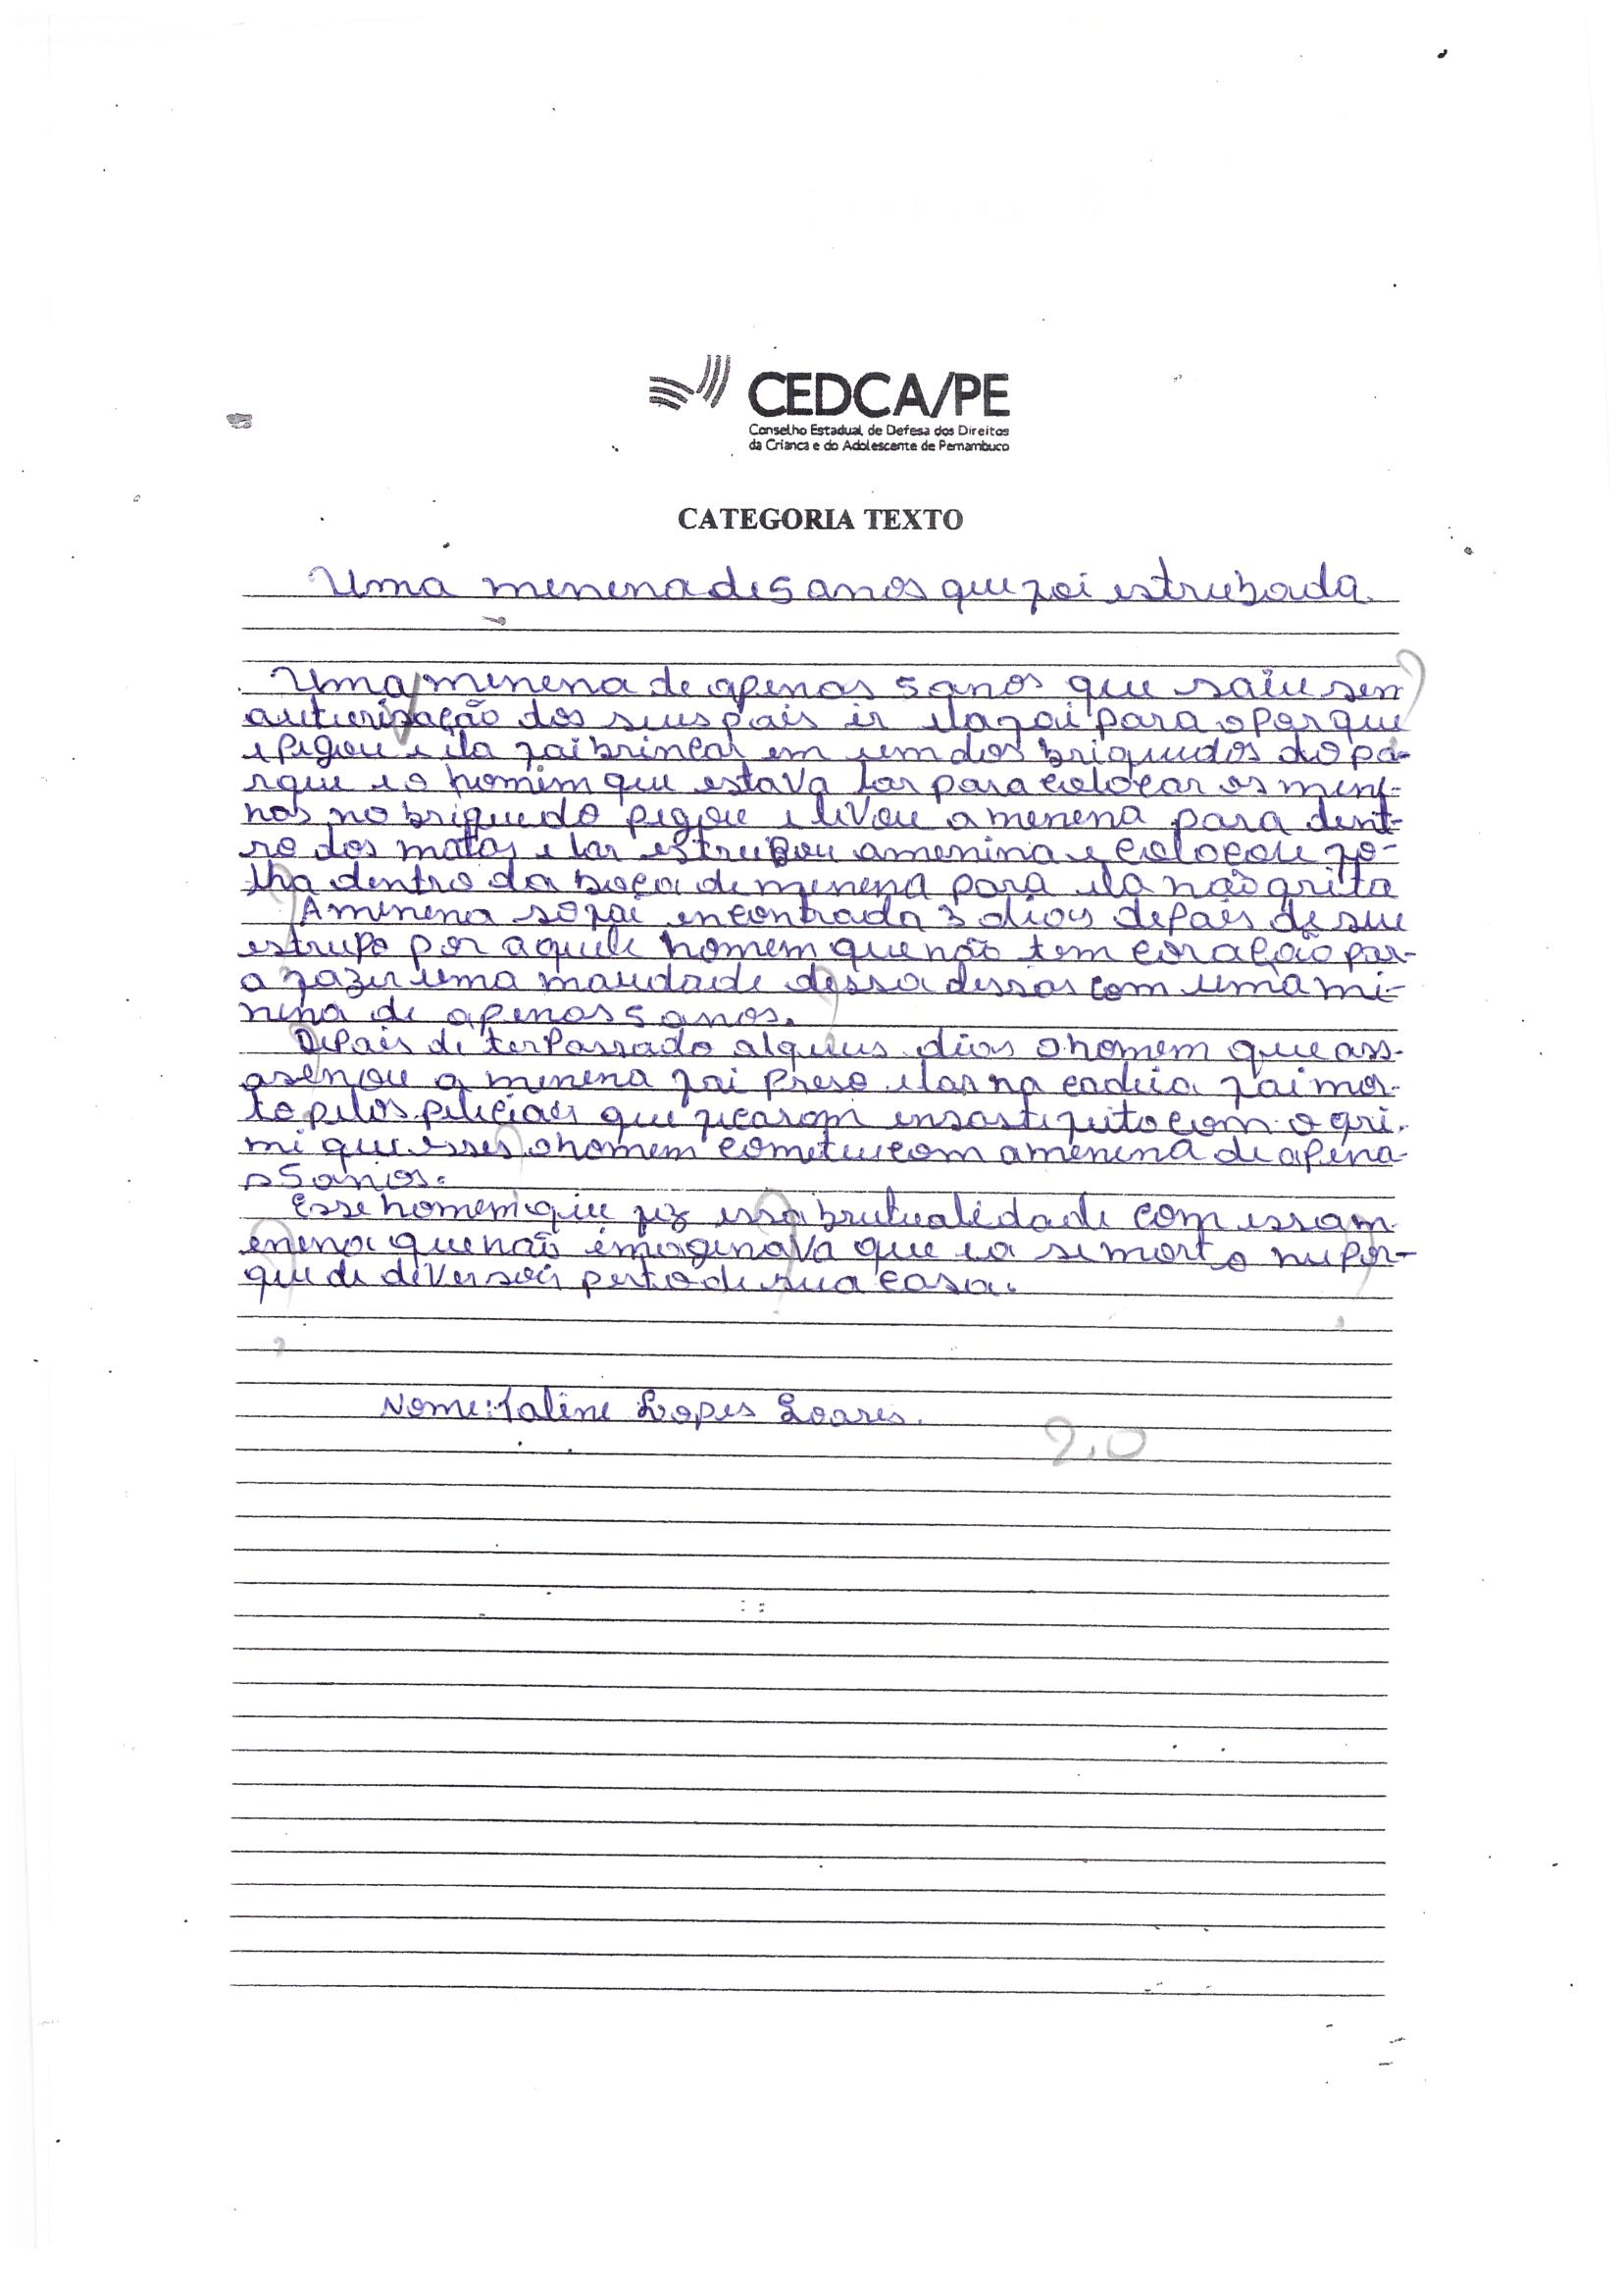 CEDCA/PE
Conselho Estadual de Defesa dos Direitos
da Criança e do Adolescente de Pernambuco
CATEGORIA TEXTO
Uma menena de 5 anos que foi estrubada.
Uma menena de apenas 5 anos que saiu sen
auturização dos seus pais ir ela foi para o parque
e pegou e ela foi brincar em um dos briquedos do pa-
rque e o homem que estava lar para colocar os meni-
nos no briquedo pegou e levou a menena para dent-
ro dos matos e lar estrubou a menina e colocou fo-
lha dentro da boca de menena para ela não grita
A menena so foi encontrada 3 dias depois de seu
estrupo por aquele homem que não tem coração par-
a fazer uma maudade dessa dessas com uma mi-
nena de apenas 5 anos.
Depois de ter passado alguns dias o homem que ass-
asenou a menena foi preso e lar na cadeia foi mor-
to pelos peliciais que ficarom ensastifeito com o qri-
mi que esses o homem cometeu com a menena de apena
s 5 anos.
Esse homem que fez essa brutualidade com essa m
enena que não imaginava que ia se morto nu por-
que de diversois perto de sua casa.
Nome: Taline Lopes Soares.
2,0